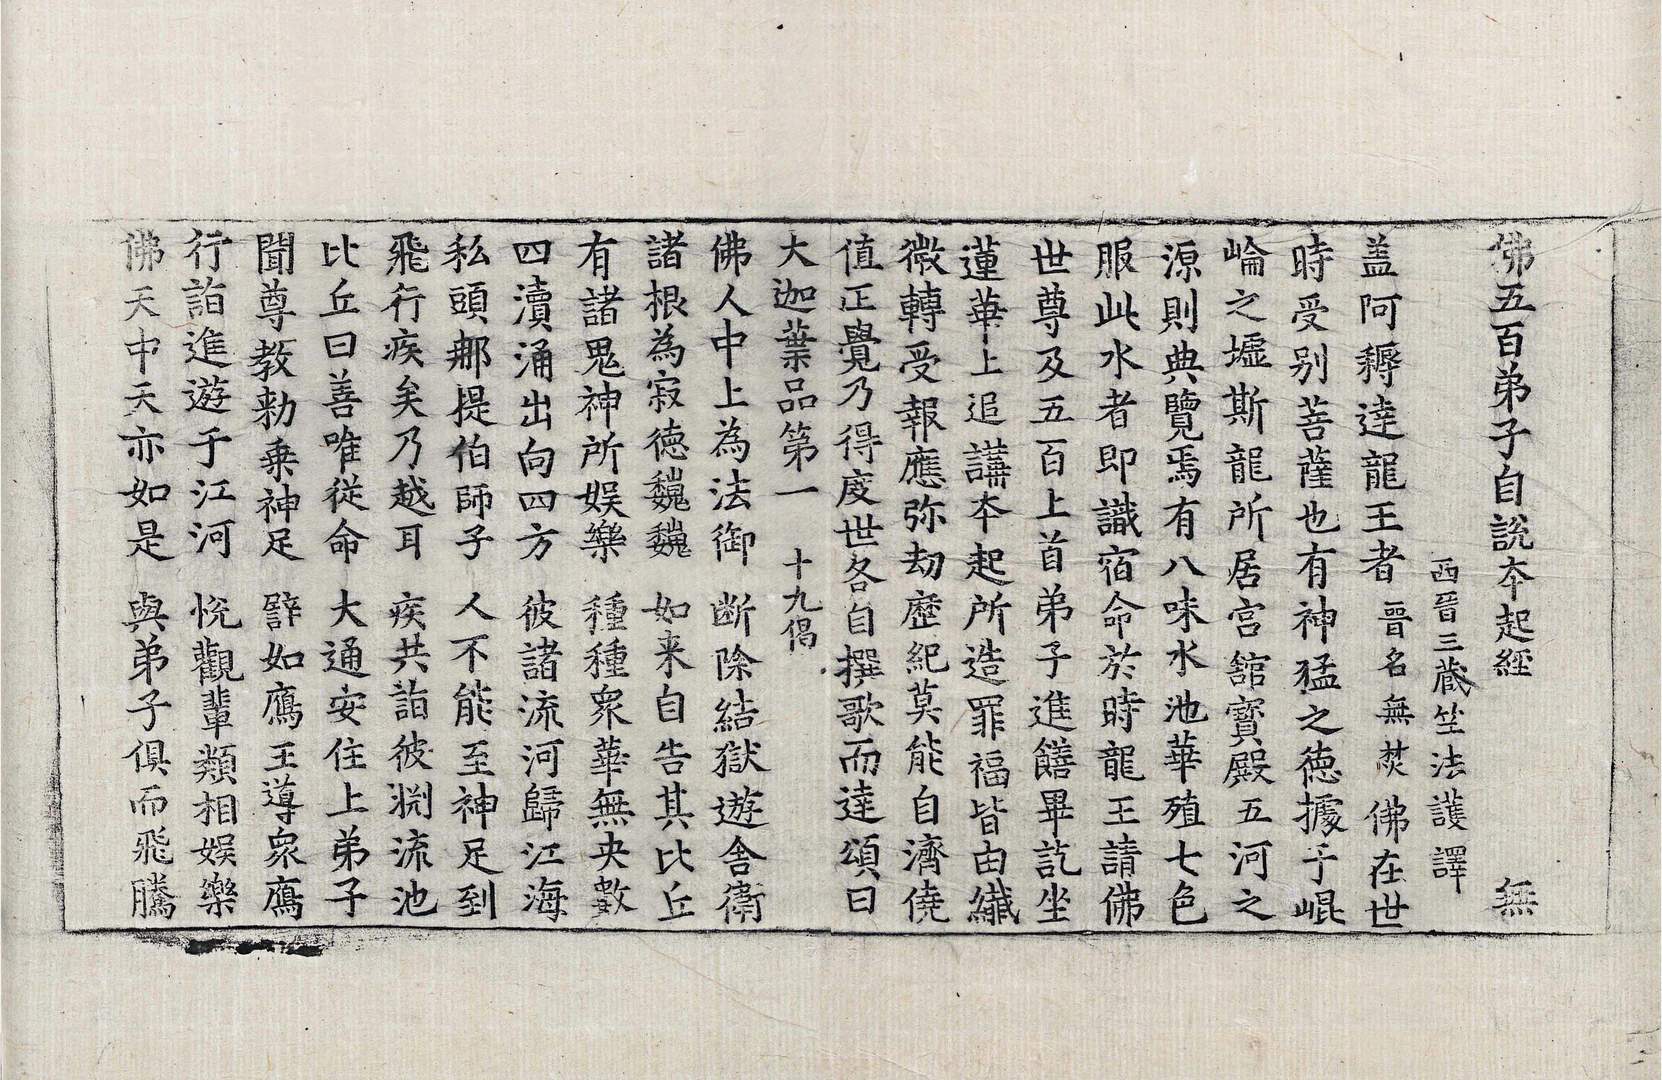 佛五百弟子自說夲起經 無
西晉三蔵竺法護譯
盖阿耨達龍王者晉名無焚佛在世
時受别菩薩也有神猛之徳據于崐
崘之墟斯龍所居宮舘寳殿五河之
源則典覽焉有八味水池華殖七色
服此水者即識宿命於時龍王請佛
世尊及五百上首弟子進饍畢訖坐
蓮華上追講夲起所造罪福皆由纎
微轉受報應弥劫歷紀莫能自濟僥
值正覺乃得度世各自撰歌而達頌曰
大迦葉品第一 十九偈
佛人中上為法御 断除結獄遊舎衛
諸根為寂德巍巍 如来自告其比丘
有諸鬼神所娛樂 種種衆華無央數
四瀆涌出向四方 彼諸流河歸江海
私頭郍提伯師子 人不能至神足到
飛行疾矣乃越耳 疾共詣彼渕流池
比丘曰善唯從命 大通安住上弟子
聞尊教勑乗神足 譬如鴈王導衆鴈
行詣進遊于江河 恱觀輩類相娛樂
佛天中天亦如是 與弟子俱而飛騰